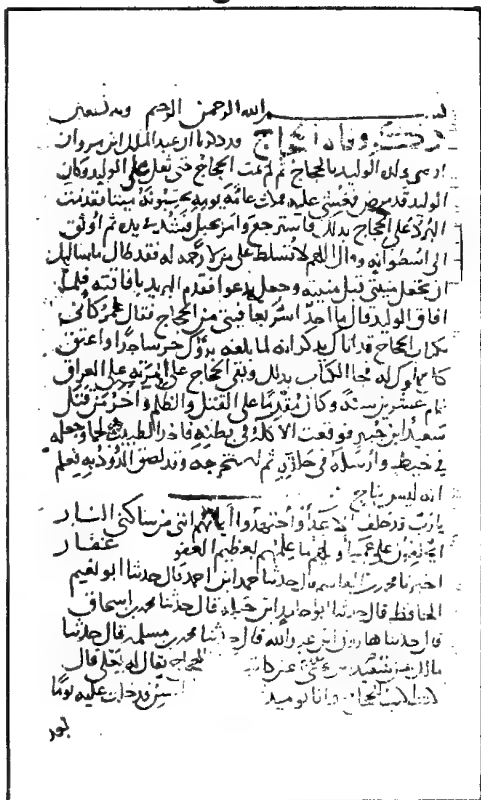 بسم الله الرحمن الرحيم وبه نستعين
ذكر وفاة الحجاج وردنا ان عبد الملك ابن مروان
اوصى ولده الوليد بالحجاج ثم لم يمت الحجاج حتى ثقل على الوليد وكان
الوليد قد مرض فغشي عليه فمكث عامة يومه يحسبونه ميتا فقدمت
البرد على الحجاج بذلك فاسترجع وامر بحبل فشد في يده ثم اوثق
الى اسطوانة وقال اللهم لا تسلط على من لا رحمة له فقد طال ما سالتك
ان تجعل منيتي قبل منيته وجعل يدعوا فقدم البريد بافاقته فلما
افاق الوليد قال ما احد اسر بعافيتي من الحجاج فقال عمر كاني
بكتاب الحجاج قد اتاك يذكر انه لما بلغه برؤك خر ساجدا واعتق
كل مملوك له فجا الكتاب بذلك وبقي الحجاج على امرته على العراق
تمام عشرين سنة وكان مقدما على القتل والظلم واخر من قتل
سعيد ابن جبير فوقعت الاكلة في بطنه فاخذ الطبيب لحما وجعله
في خيط وارسله في حلقه ثم استخرجه وقد لصق الدود به فعلم
انه ليس بناج
يا رب قد حلف الاعدا واجتهدوا ايمانهم انني من ساكني النار
ايحلفون على عميا ويحهم ما علمهم بعظيم العفو غفار
اخبرنا محمد بن القاسم قال حدثنا حمد ابن احمد قال حدثنا ابو نعيم
الحافظ قال حدثنا ابو حامد ابن جبلة قال حدثنا محمد بن اسحاق
قال حدثنا هارون ابن عبد الله قال حدثنا محمد بن مسلمة قال حدثنا
مالك بن سعيد عن كاتب الحجاج يقال له يعلى قال
كنت اكتب للحجاج وانا يوميذ السن فدخلت عليه يوما
بعد